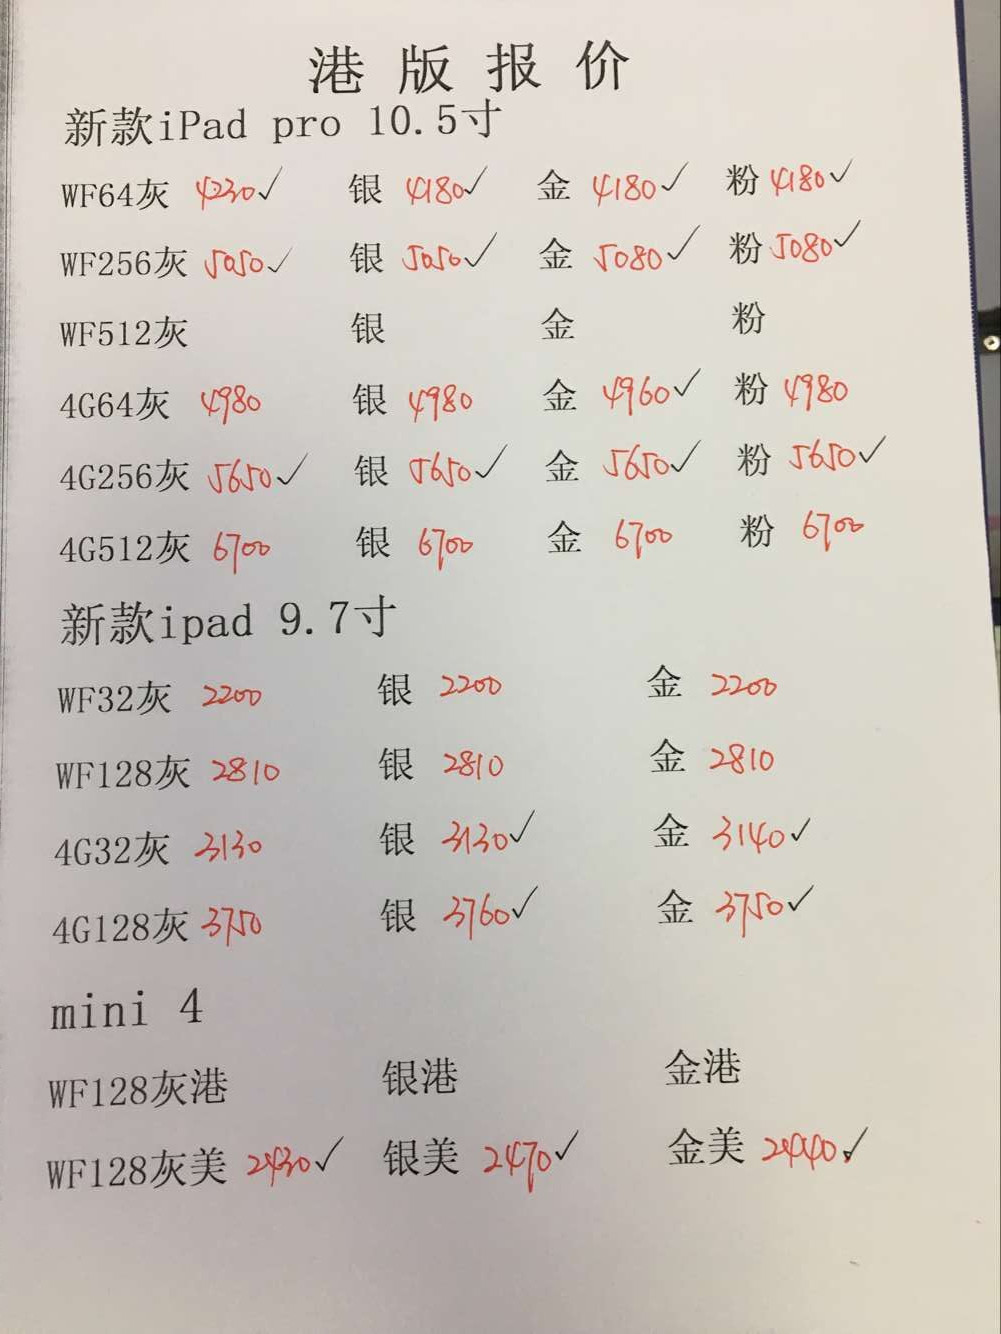 港版报价
新款iPad pro 10.5寸
WF64灰 4230✓ 银 4180✓ 金 4180✓ 粉 4180✓
WF256灰 5050✓ 银 5050✓ 金 5080✓ 粉 5080✓
WF512灰 银 金 粉
4G64灰 4980 银 4980 金 4960✓ 粉 4980
4G256灰 5650✓ 银 5650✓ 金 5650✓ 粉 5650✓
4G512灰 6700 银 6700 金 6700 粉 6700
新款ipad 9.7寸
WF32灰 2200 银 2200 金 2200
WF128灰 2810 银 2810 金 2810
4G32灰 3130 银 3130✓ 金 3140✓
4G128灰 3750 银 3760✓ 金 3750✓
mini 4
WF128灰港 银港 金港
WF128灰美 2430✓ 银美 2470✓ 金美 2440✓